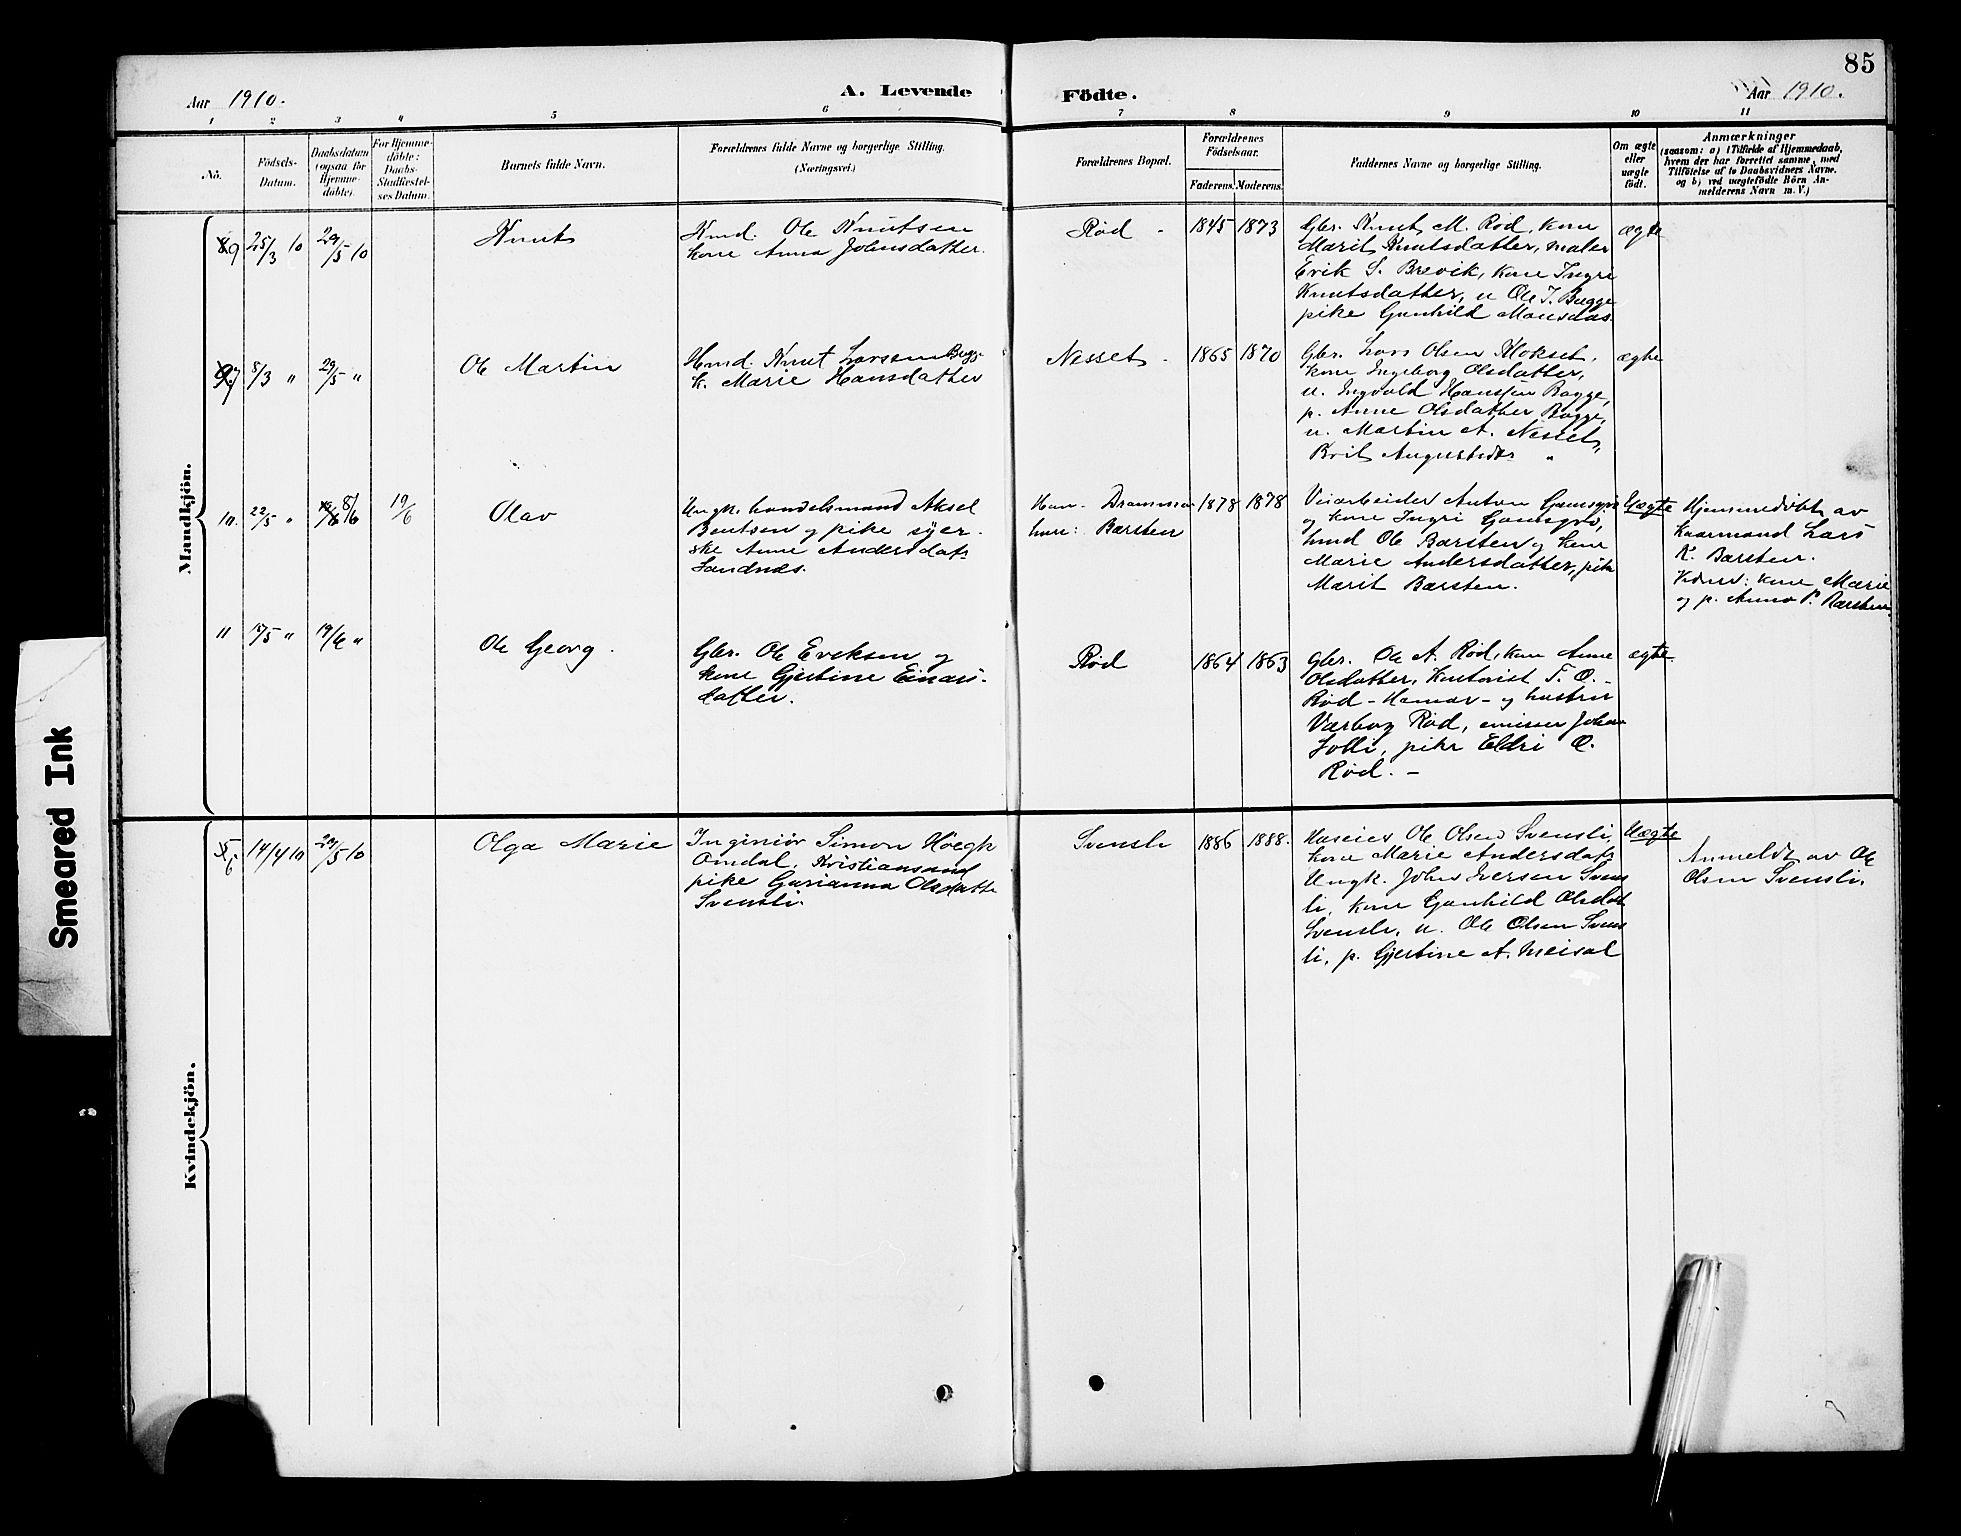 85
Aar 1910.
A. Levende
Födte.
Aar 1910.
1 2 3 4 5 6 7 8 9 10 11
No.
Födsels-
Datum.
Daabsdatum
(ogsaa for
Hjemme-
döbte).
For Hjemme-
döbte:
Daabs-
Stadfæstel-
ses Datum.
Barnets fulde Navn.
Forældrenes fulde Navne og borgerlige Stilling.
(Næringsvei.)
Forældrenes Bopæl.
Forældrenes
Födselsaar.
Faderens. Moderens.
Faddernes Navne og borgerlige Stilling.
Om ægte
eller
uægte
födt.
Anmærkninger
(saasom: a) i Tilfælde af Hjemmedaab,
hvem der har forrettet samme, med
Tilföielse af to Daabsvidners Navne,
og b) ved uægtefödte Börn An-
melderens Navn m. V.)
Mandkjön.
9 25/3 10 29/5 10
Knut
Kmd. Ole Knutsen
kone Anna Johnsdatter.
Rød -
1845 1873
Gbr. Knut M. Rød, kone
Marit Knutsdatter, maler
Erik S. Brevik, kone Ingri
Knutsdatter, u Ole J. Bugge
pike Gunhild Monsdas.
ægte
8/3 " 29/5 "
Ole Martin
Hmd. Knut Larsen Bugge
k. Marie Hansdatter
Nesset -
1865 1870
Gbr. Lars Olsen Klokset,
kone Ingeborg Olsdatter,
u. Ingvald Hansen Bugge,
p. Anne Olsdatter Bugge,
u. Martin A. Nesset,
Brit Augustsdtr "
ægte
10. 22/5 " 8/6 19/6
Olav
Ungk. handelsmand Aksel
Bentsen og pike syer-
ske Anne Andersdatr
Sandnes.
Han - Drammen
hun: Barsten
1878 1878
Veiarbeider Anton Gamsgrø
og kone Ingri Gamsgrø,
kmd Ole Barsten og kone
Marie Andersdatter, pike
Marit Barsten.
Uægte
Hjemmedøbt av
Kaarmand Lars
K. Barsten.
Vidner: kone Marie
og p. Anna P. Barsten
11 15/5 " 19/6 "
Ole Georg.
Gbr. Ole Eriksen og
kone Gjertine Einars-
datter.
Rød
1864 1863
Gbr. Ole A. Rød, kone Anne
Olsdatter, Kontorist T. O. -
Rød - Hamar - og hustru
Valborg Rød, emissær Johan
Solli, pike Eldri O.
Rød. -
ægte
Kvindekjön.
6 14/4 10 29/5 10
Olga Marie
Inginiør Simon Høegh
Omdal, Kristiansand
pike Gurianna Olsdatte
Svensli.
Svensli
1886 1888.
Huseier Ole Olsen Svensli,
kone Marie Andersdatr
Ungk. John Iversen Svens
li, kone Gunhild Olsdat
Svensli, u. Ole Olsen Svens
li, p. Gjertine A. Meisal
Uægte
Anmeldt av Ole
Olsen Svensli.
Smeared Ink